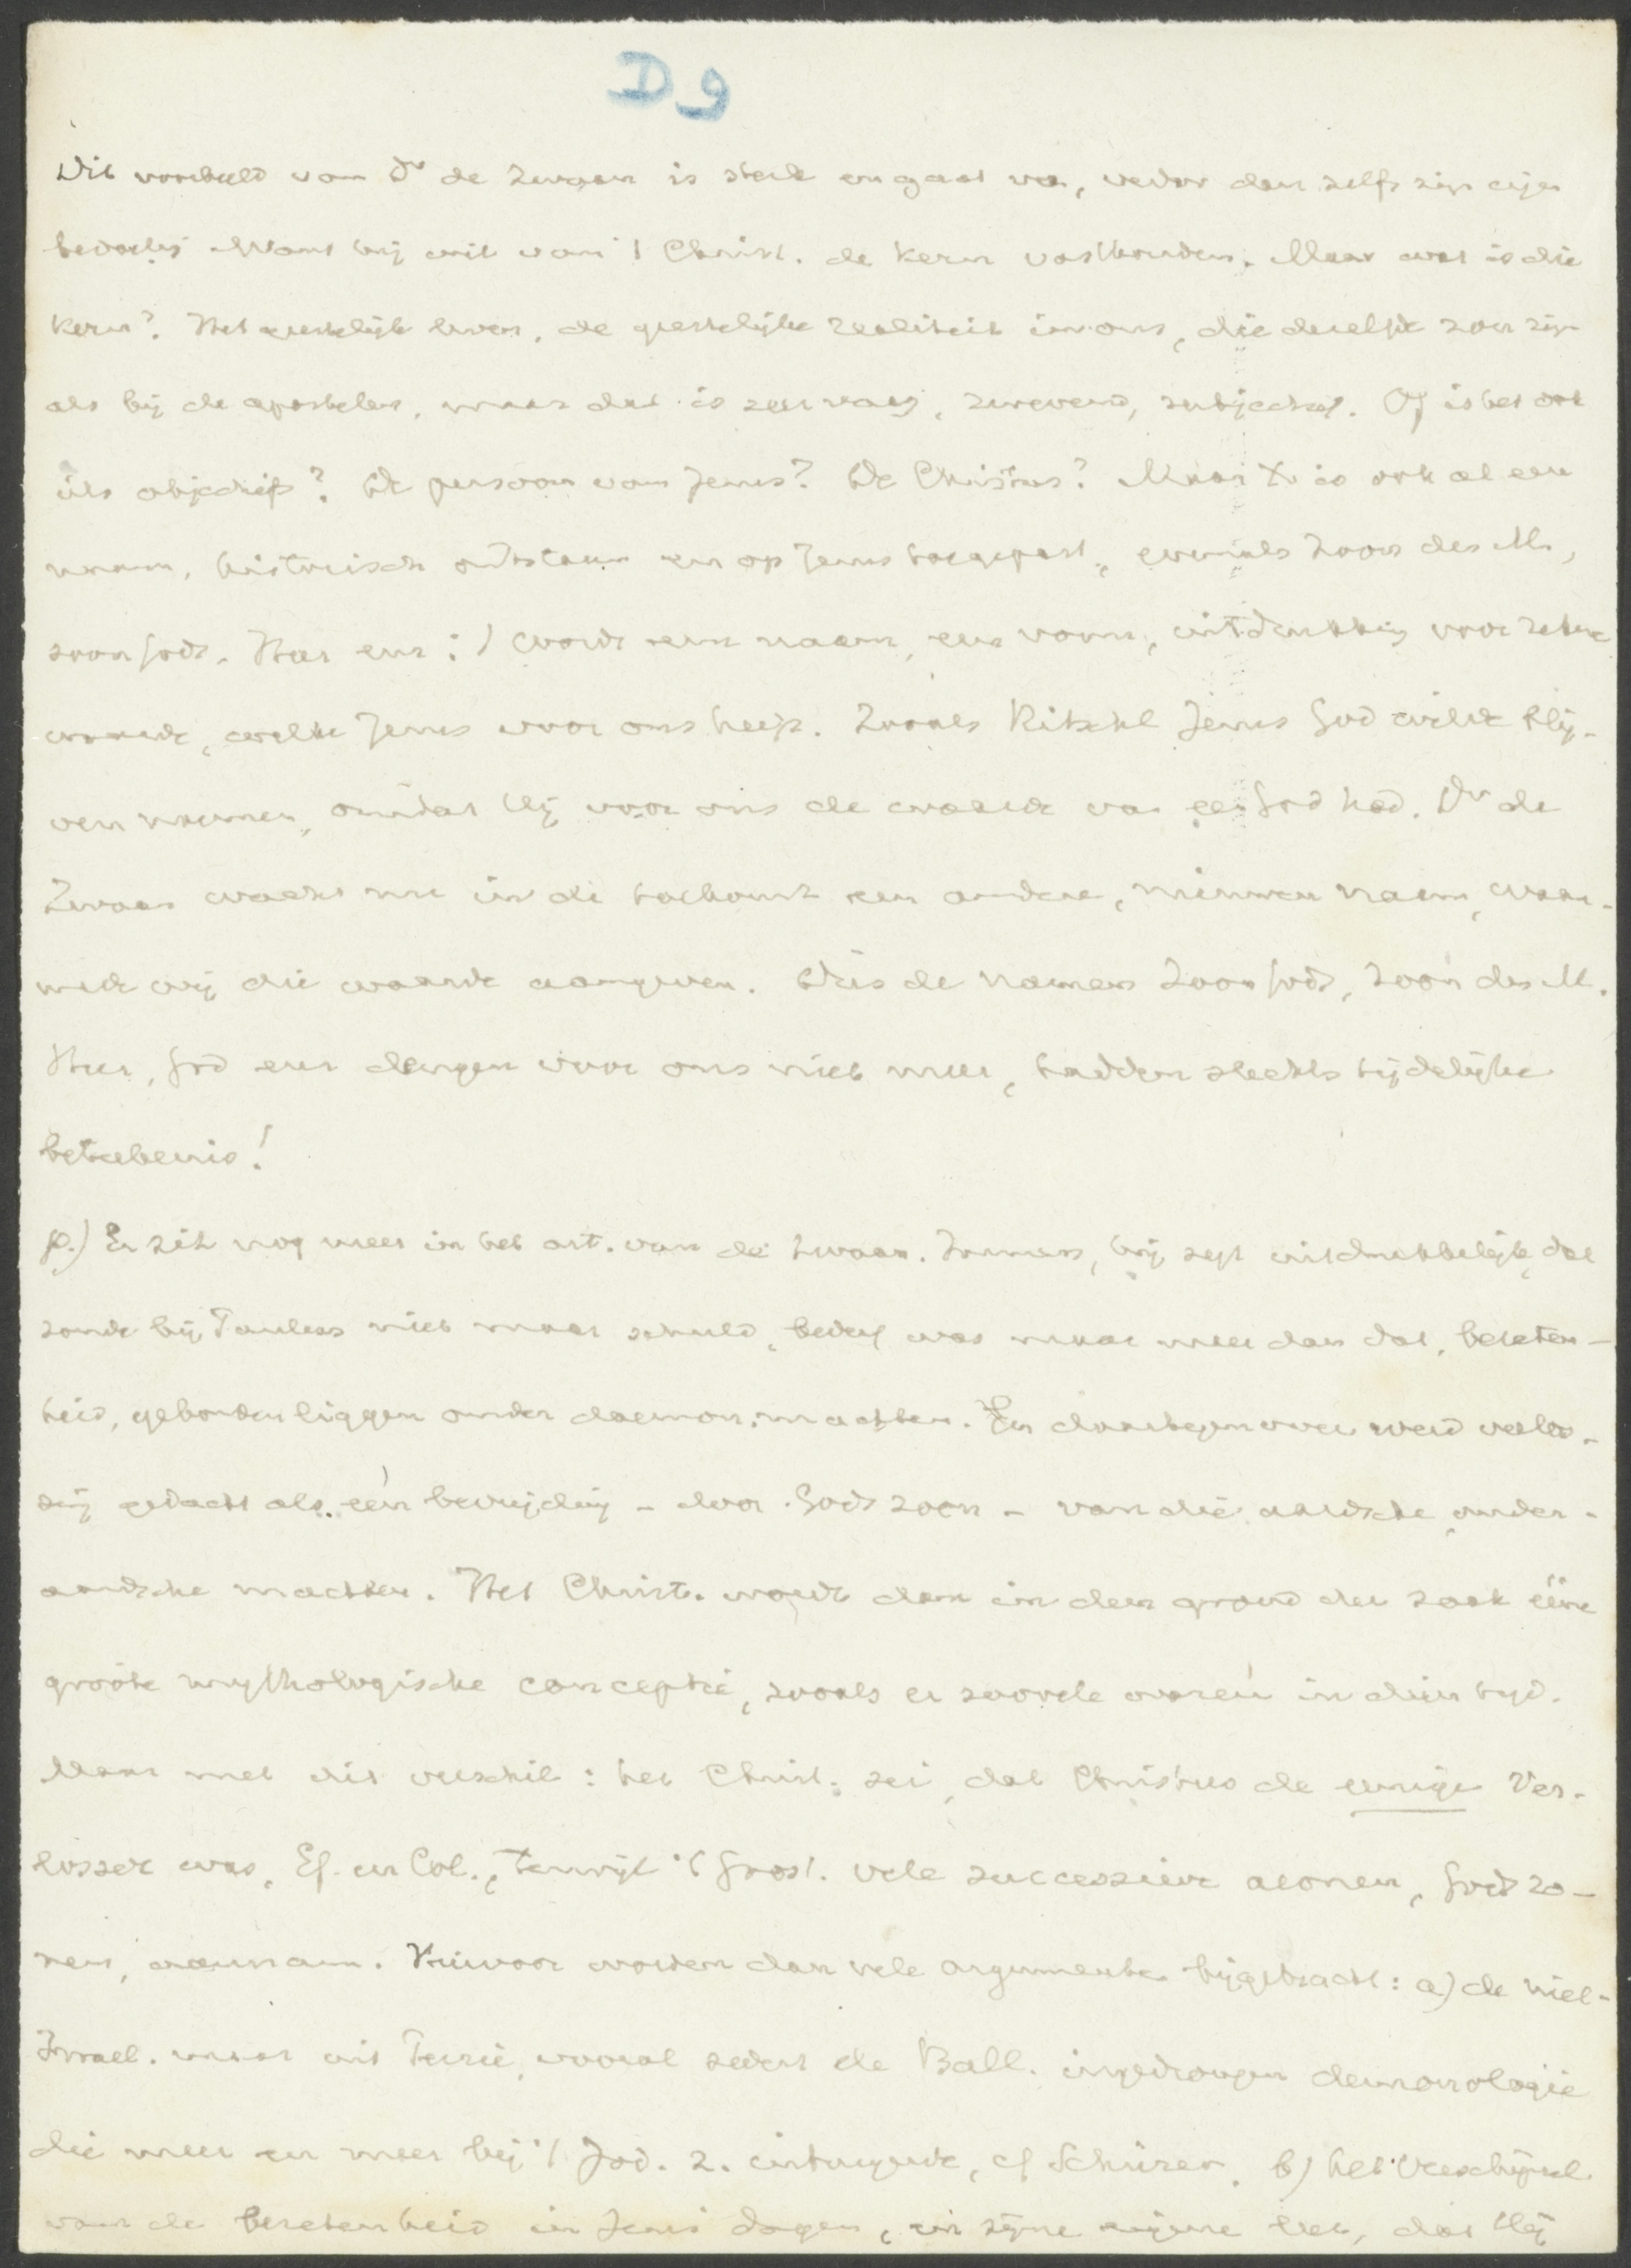 D 9
Dit voorbeeld van Dr de Zwaan is sterk en gaat ver, verder dan zelfs zijn eigen
bedoeling. Want hij wil van 't Christ. de kern vasthouden. Maar wat is die
kern? Het geestelijk leven, de geestelijke realiteit in ons, die dezelfde zou zijn
als bij de apostelen, maar dat is zeer vaag, zwevend, subjectief. Of is het ook
iets objectiefs? De persoon van Jezus? De Christus? Maar X. is ook al een
naam, historisch ontstaan en op Jezus toegepast, evenals Zoon des M.,
zoon Gods, Heer enz.: 't wordt een naam, een vorm, uitdrukking voor zekere
waarde, welke Jezus voor ons heeft. Zooals Ritschl Jezus God wilde blij-
ven noemen, omdat Hij voor ons de waarde van een God had. Dr de
Zwaan wacht nu in de toekomst een andere, nieuwen naam, waar-
mede wij die waarde aangeven. Dus de namen Zoon Gods, Zoon des M.
Heer, God enz deugen voor ons niet meer, hadden slechts tijdelijke
beteekenis!
Er zit nog meer in het art. van de Zwaan. Immers, hij zegt uitdrukkelijk, dat
zonde bij Paulus niet maar schuld, bederf was maar meer dan dat, bezeten-
heid, gebonden liggen onder daemon. machten. En daartegenover werd verlos-
sing gedacht als een bevrijding - door Gods zoon - van die aardsche, onder-
aardsche machten. Het Christ. wordt dan in den grond der zaak ééne
groote mythologische conceptie, zooals er zoovele waren in dien tijd.
Maar met dit verschil: het Christ. zei, dat Christus de eenige Ver-
losser was, Ef. en Col., terwijl 't Gnost. vele successieve aeonen, Gods zo-
nen, aannam. Hiervoor worden dan vele argumenten bijgebracht: a) de niet-
Israel. maar uit Perzië, vooral sedert de Ball. ingedrongen demonologie
die meer en meer bij 't Jod. z. uitbreidde, cf Schürer. b) het verschijnsel
van de bezetenheid in Jezus dagen, in zijne eigene leer, dat Hij